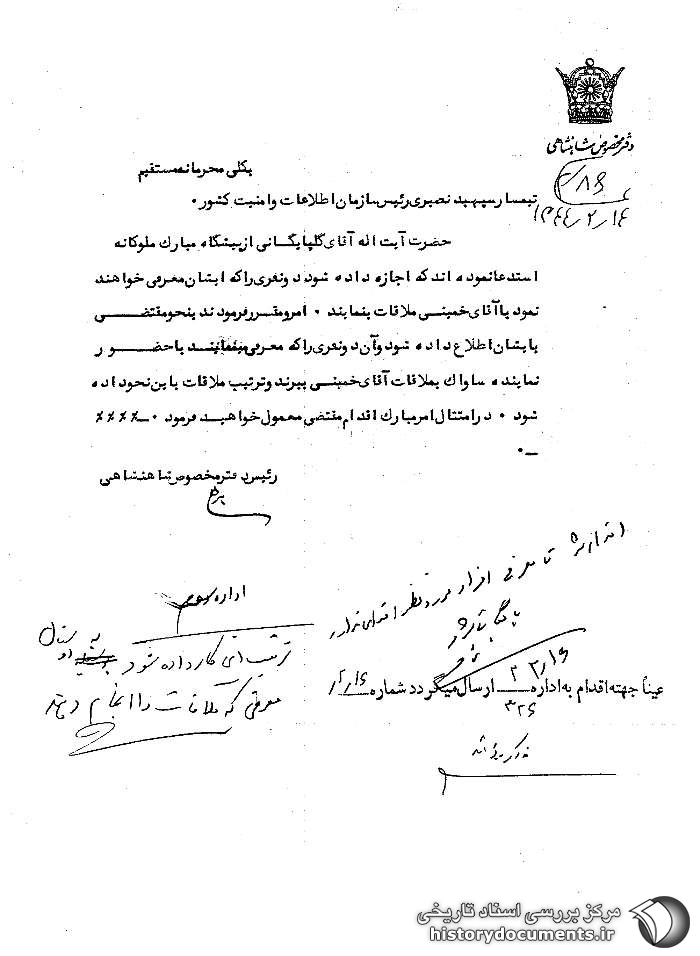 دفتر مخصوص شاهنشاهی
۱۳۴۴/۲/۱۴
بکلی محرمانه مستقیم
تیمسار سپهبد نصیری رئیس سازمان اطلاعات و امنیت کشور ۰
حضرت آیت اله آقای گلپایگانی از پیشگاه مبارک ملوکانه
استدعا نموده اند که اجازه داده شود دو نفری را که ایشان معرفی خواهند
نمود با آقای خمینی ملاقات بنمایند ۰ امر و مقرر فرمودند بنحو مقتضی
بایشان اطلاع داده شود و آن دو نفری را که معرفی مینمایند با حضور
نماینده ساواک بملاقات آقای خمینی ببرند و ترتیب ملاقات باین نحو داده
شود ۰ در امتثال امر مبارک اقدام مقتضی معمول خواهید فرمود ۰ــ٪٪٪٪
ــ۰
رئیس دفتر مخصوص شاهنشاهی
تا معرفی افراد مورد نظر اقدامی ندارد
اداره سوم
ترتیب این کار داده شود
معرفی که ملاقات را انجام دهد
عیناً جهته اقدام به اداره ارسال میگردد شماره
۳۲۶
مرکز بررسی اسناد تاریخی
historydocuments.ir